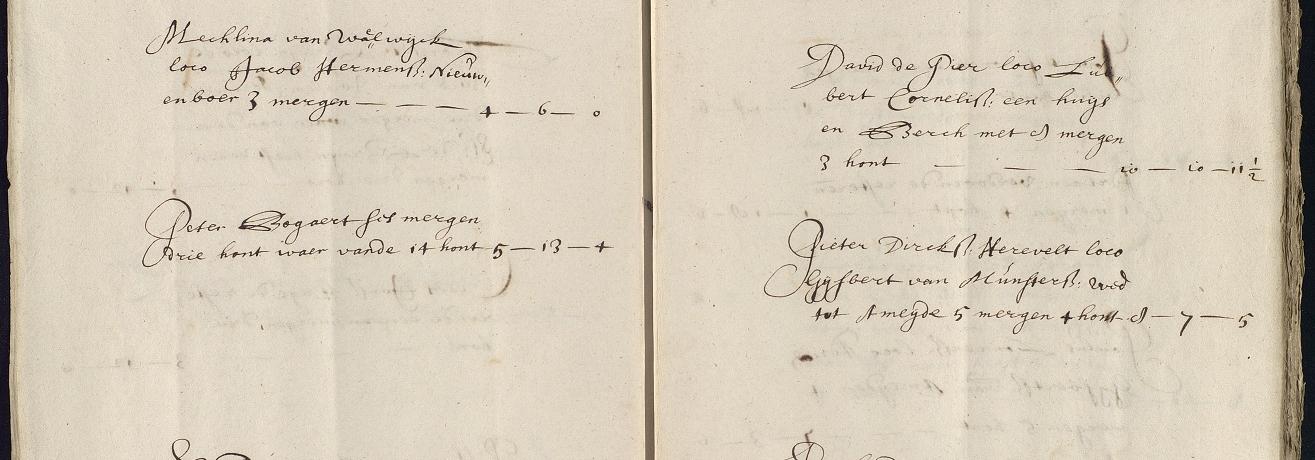 Mechlina van Waelwyck
loco Jacob Hermenß: Nieuw„
enboer 3 mergen — — — 4 — 6 — 0
Peter Bogaert ses mergen
drie hont waer vande 14 hont 5 — 13 — 4
David de Pier loco Lub„
bert Corneliß: een huys
en Berch met 8 mergen
3 hont — — — 10 — 10 — 11 ½
Pieter Dirckß: Herevelt loco
Gysbert van Munsterß: wed
tot Ameyde 5 mergen 4 hont 8 — 7 — 5